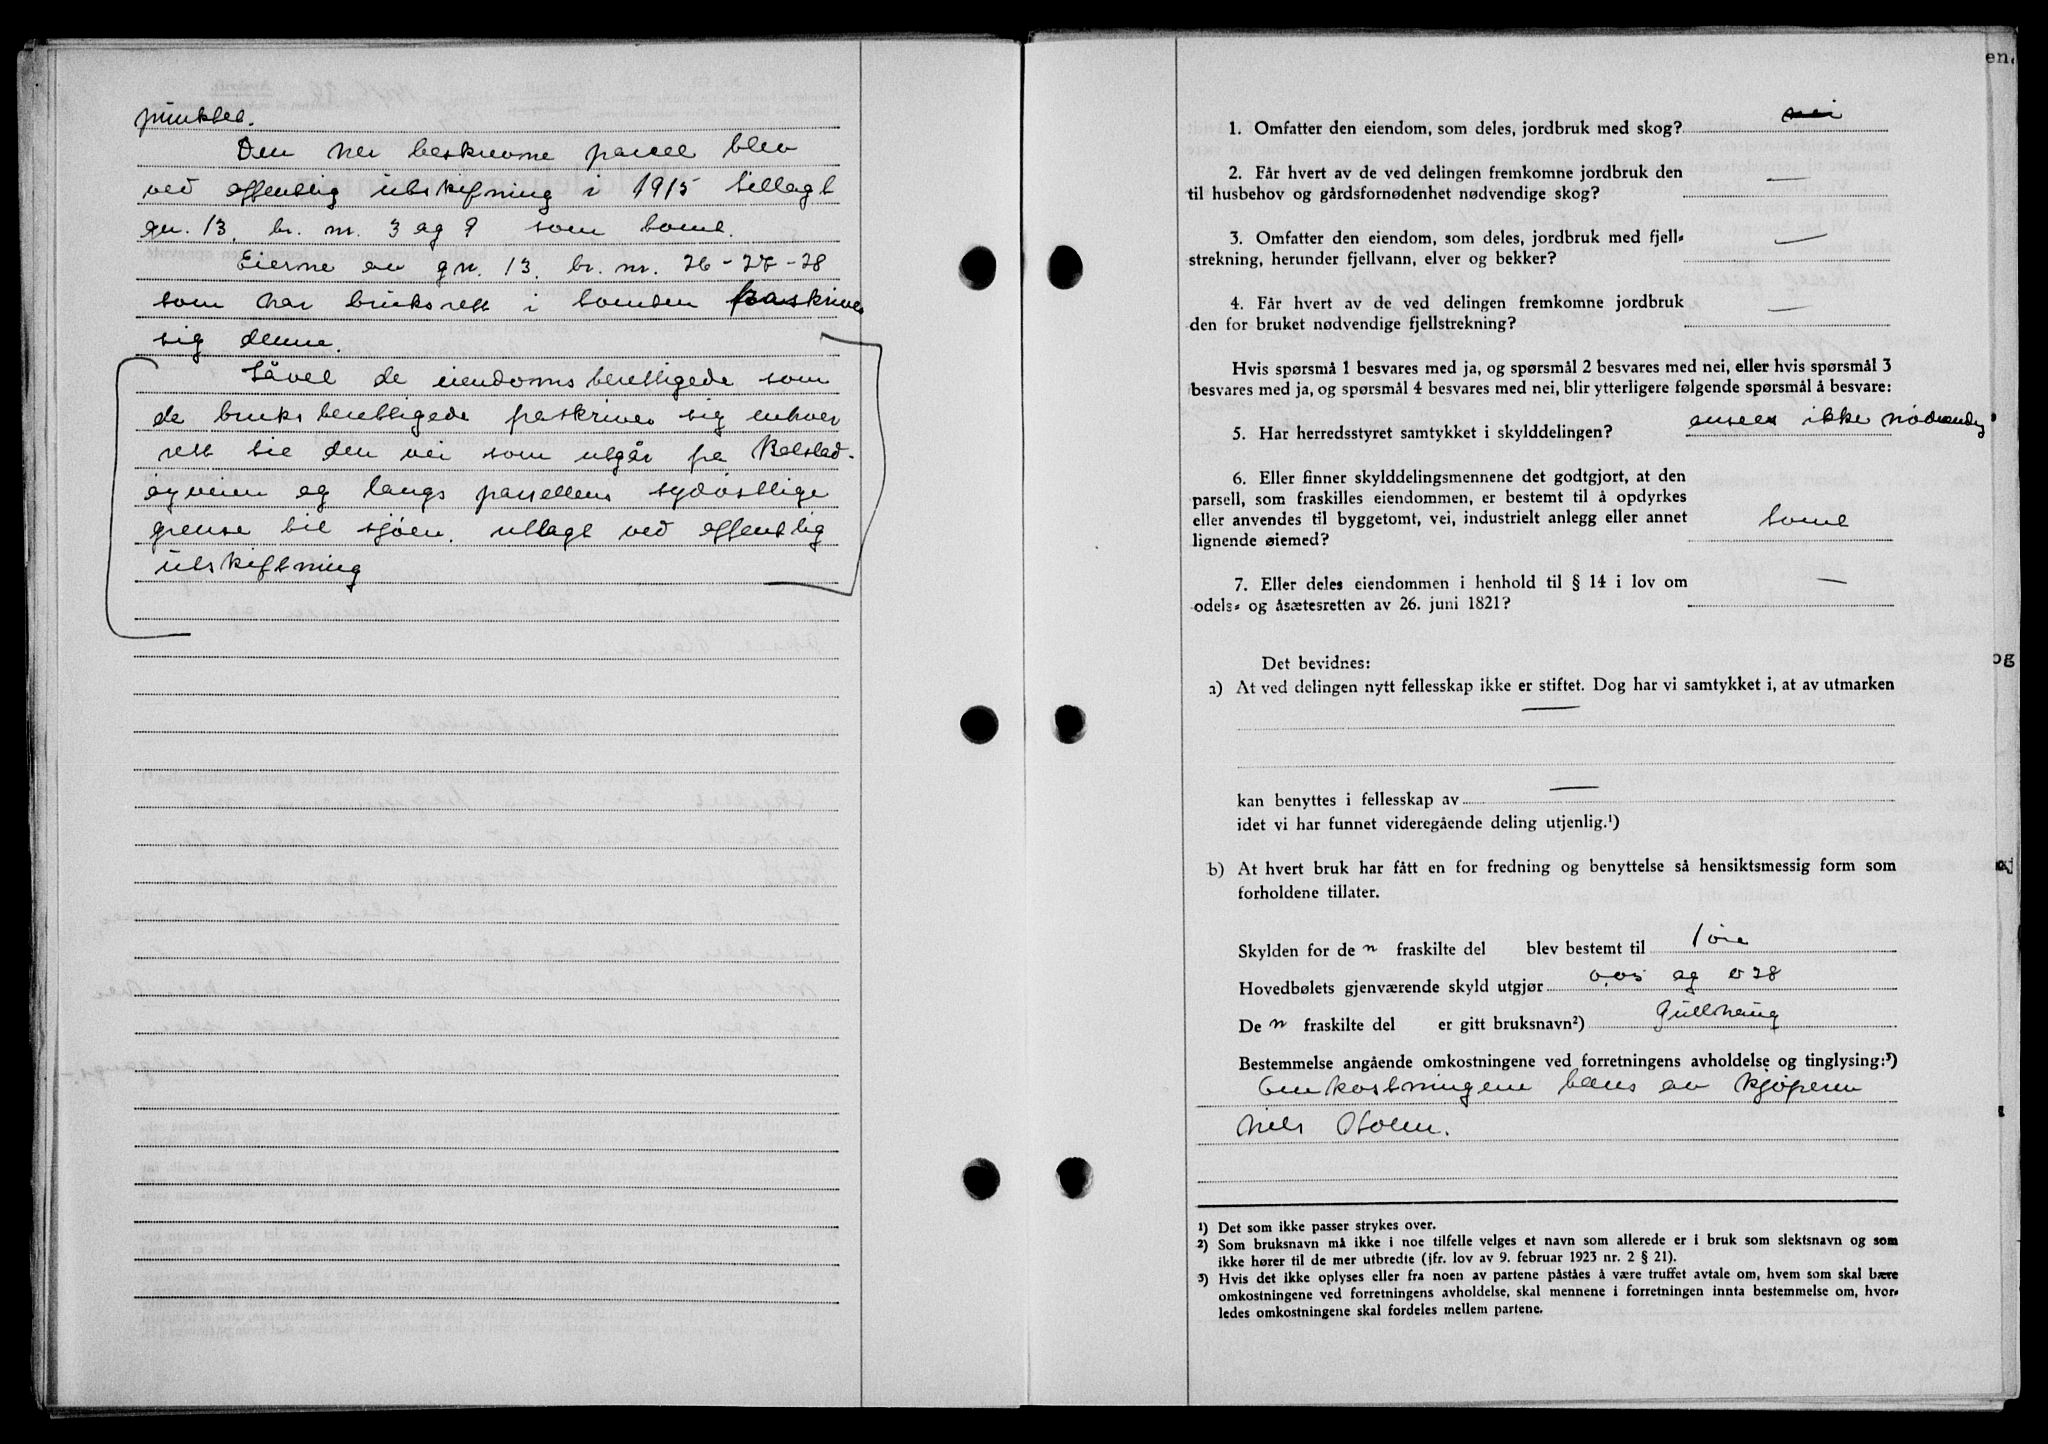 punktet.
Den her beskrevne parcel blev
ved offentlig utskifning i 1915 tillagt
gn. 13, br. nr. 3 og 9 som tomt.
Eierne av gn. 13. br. nr. 26-27-28
som har bruksrett i tomten fraskriver
sig denne.
Såvel de eiendomsberettigede som
de bruksberettigede fraskriver sig enhver
rett til den vei som utgår fra Bolstad-
øyveien og langs parsellens sydøstlige
grense til sjøen. utlagt ved offentlig
utskiftning
1. Omfatter den eiendom, som deles, jordbruk med skog? nei
2. Får hvert av de ved delingen fremkomne jordbruk den
til husbehov og gårdsfornødenhet nødvendige skog? —
3. Omfatter den eiendom, som deles, jordbruk med fjell-
strekning, herunder fjellvann, elver og bekker? —
4. Får hvert av de ved delingen fremkomne jordbruk
den for bruket nødvendige fjellstrekning? —
Hvis spørsmå 1 besvares med ja, og spørsmål 2 besvares med nei, eller hvis spørsmål 3
besvares med ja, og spørsmål 4 besvares med nei, blir ytterligere følgende spørsmål å besvare:
5. Har herredsstyret samtykket i skylddelingen? ansees ikke nødvendig
6. Eller finner skylddelingsmennene det godtgjort, at den
parsell, som fraskilles eiendommen, er bestemt til å opdyrkes
eller anvendes til byggetomt, vei, industrielt anlegg eller annet
lignende øiemed? tomt
7. Eller deles eiendommen i henhold til § 14 i lov om
odels- og åsætesretten av 26. juni 1821? —
Det bevidnes:
a) At ved delingen nytt fellesskap ikke er stiftet. Dog har vi samtykket i, at av utmarken
—
kan benyttes i fellesskap av —
idet vi har funnet videregående deling utjenlig.¹)
b) At hvert bruk har fått en for fredning og benyttelse så hensiktsmessig form som
forholdene tillater.
Skylden for de n fraskilte del blev bestemt til 1 øre
Hovedbølets gjenværende skyld utgjør 0,05 og 0 28
De n fraskilte del er gitt bruksnavn²) Gullhaug
Bestemmelse angående omkostningene ved forretningens avholdelse og tinglysing:³)
Omkostningene bæres av kjøperen
Nils Holen.
¹) Det som ikke passer strykes over.
²) Som bruksnavn må ikke i noe tilfelle velges et navn som allerede er i bruk som slektsnavn og som
ikke hører til de mer utbredte (jfr. lov av 9. februar 1923 nr. 2 § 21).
³) Hvis det ikke oplyses eller fra noen av partene påståes å være truffet avtale om, hvem som skal bære
omkostningene ved forretningens avholdelse, skal mennene i forretningen innta bestemmelse om, hvor-
ledes omkostningene skal fordeles mellem partene.
en.
og